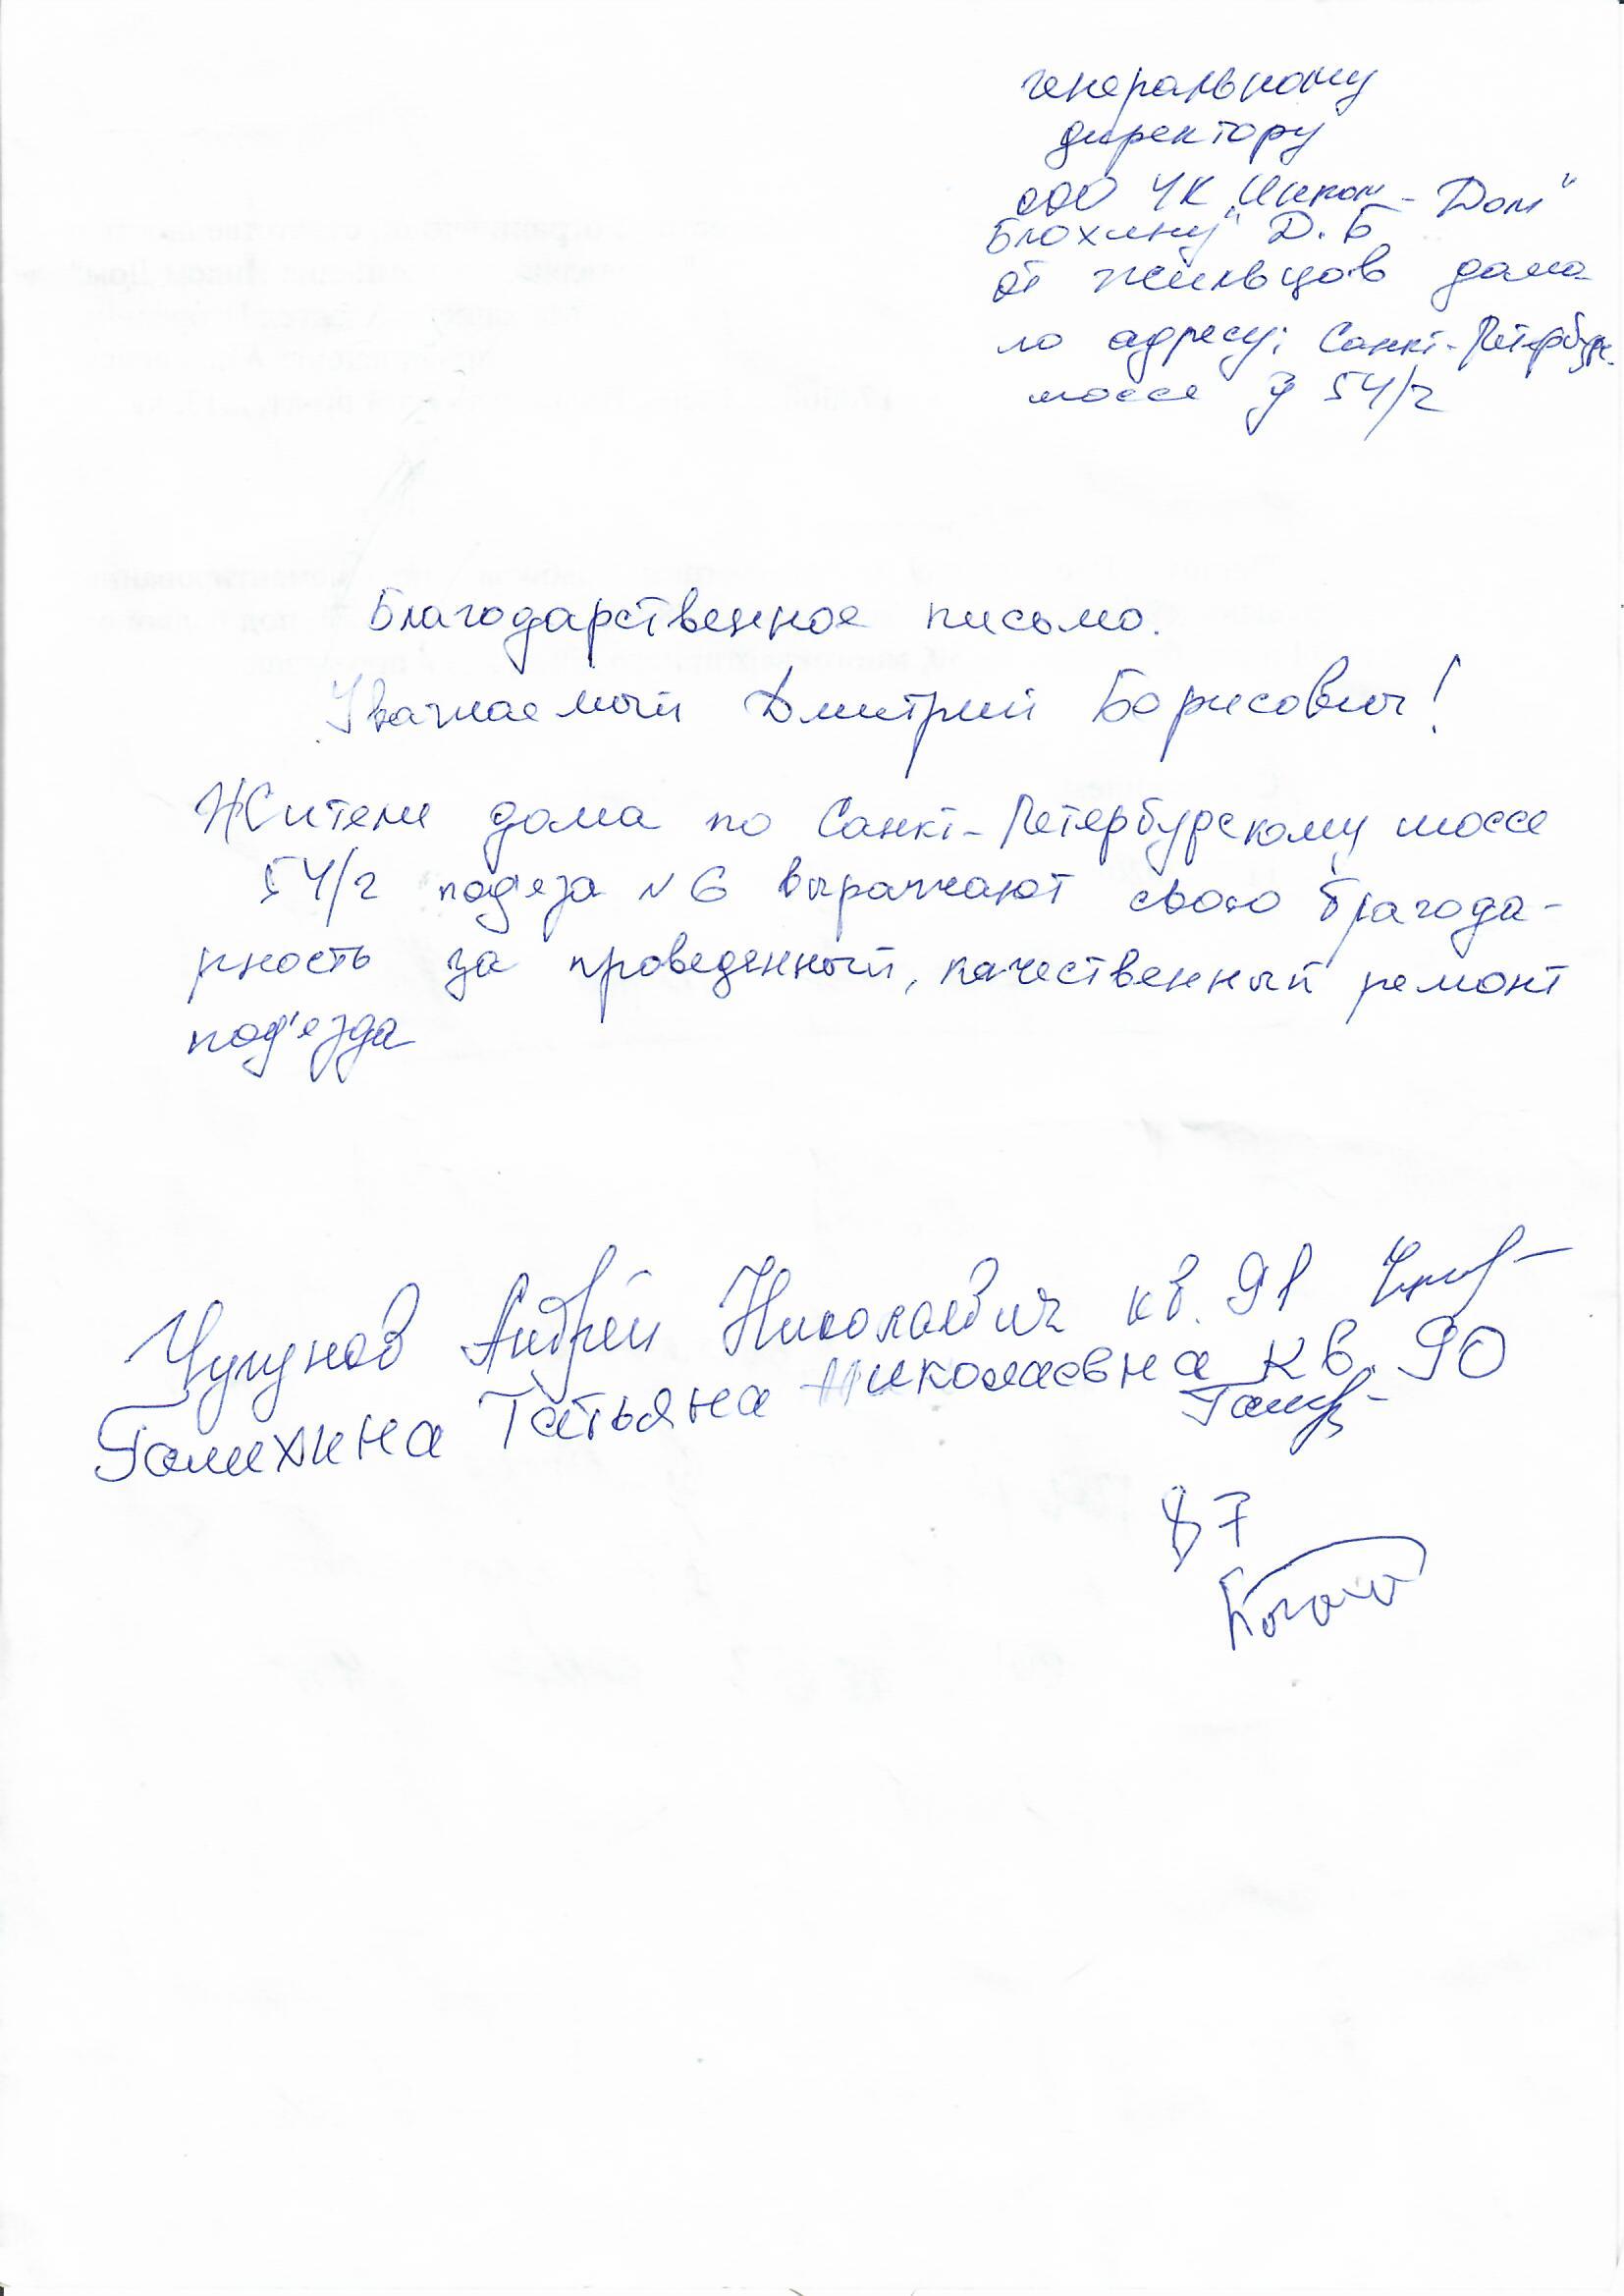 генеральному
директору
ООО УК "Инком-Дом"
Блохину Д.Б
от жильцов дома
по адресу: Санкт-Петербург.
шоссе д 54/2
Благодарственное письмо.
Уважаемый Дмитрий Борисович!
Жители дома по Санкт-Петербурскому шоссе
54/2 под'еза N 6 выражают свою благода-
рность за проведенный, качественный ремонт
под'езда
Чугунов Андрей Николаевич кв. 91
Галихина Татьяна Николаевна кв. 90
87